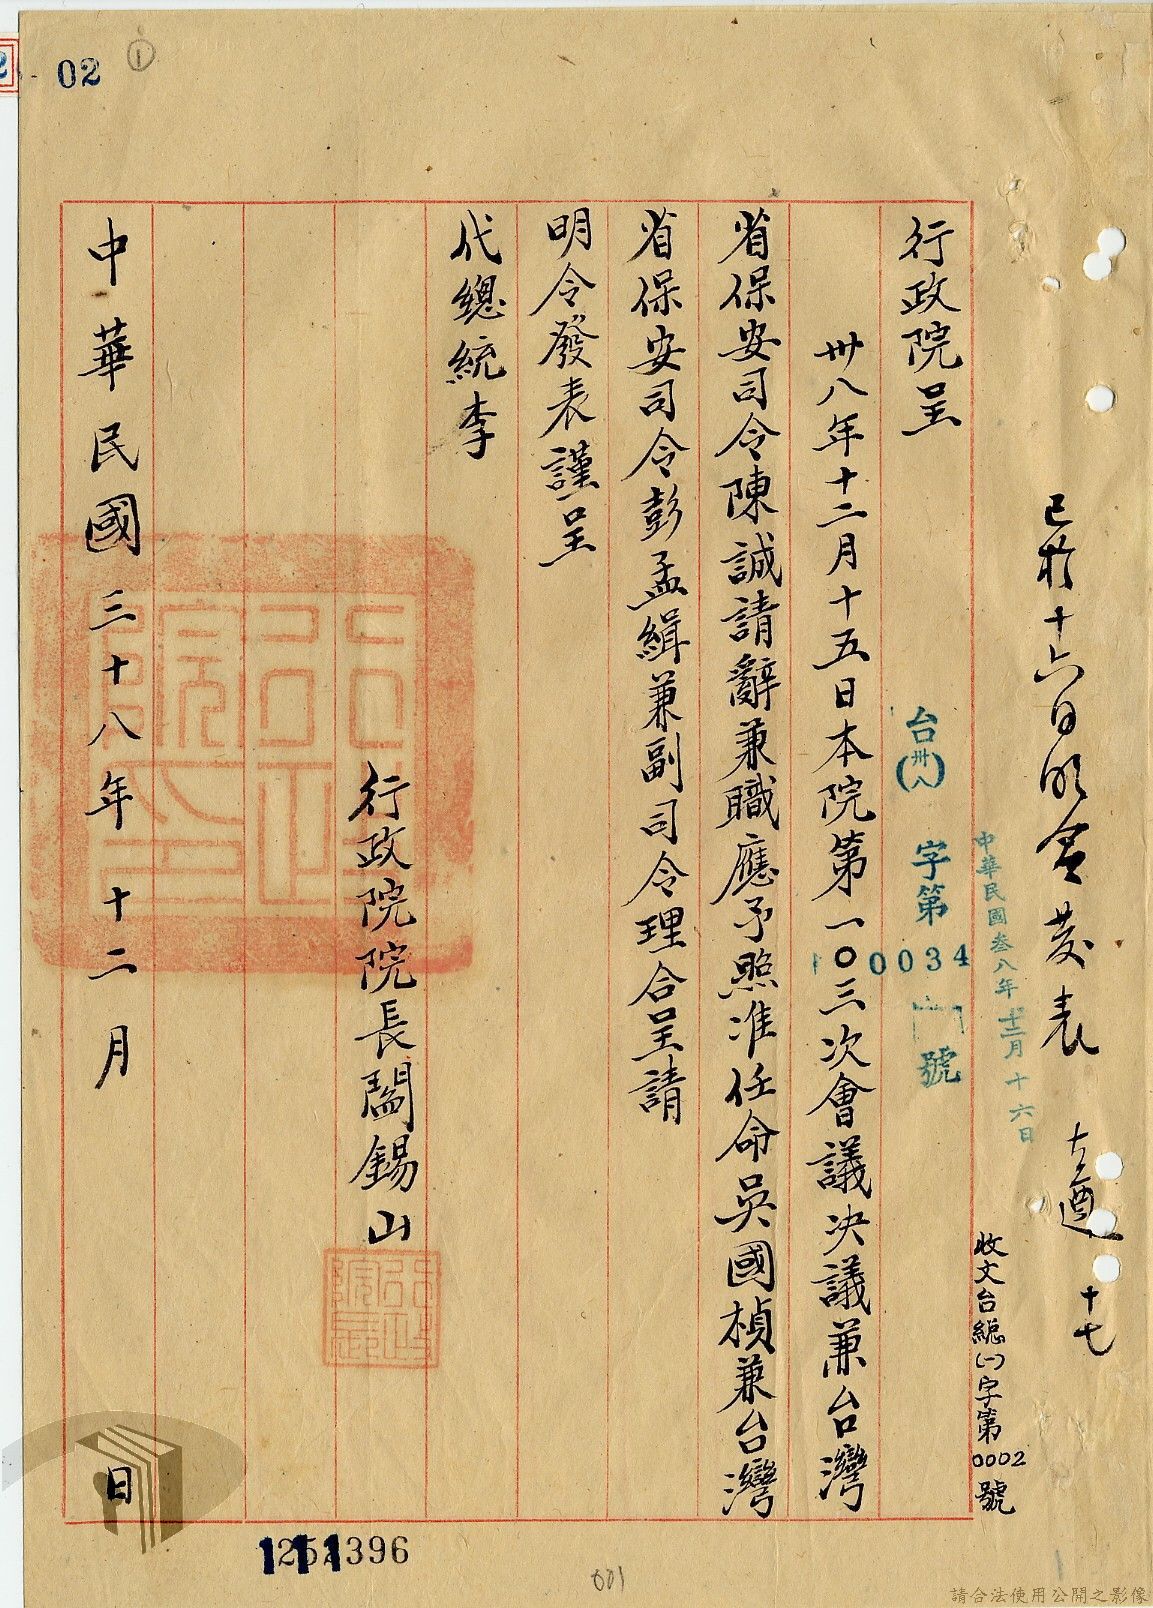 02
①
已於十六日明令發表
十七
收文台總(一)字第0002號
中華民國叁八年十二月十六日
台(卅八)字第0034號
行政院呈
卅八年十二月十五日本院第一〇三次會議決議兼台灣
省保安司令陳誠請辭兼職應予照准任命吳國楨兼台灣
省保安司令彭孟緝兼副司令理合呈請
明令發表謹呈
代總統李
行政院院長閻錫山
中華民國三十八年十二月 日
396
001
請合法使用公開之影像